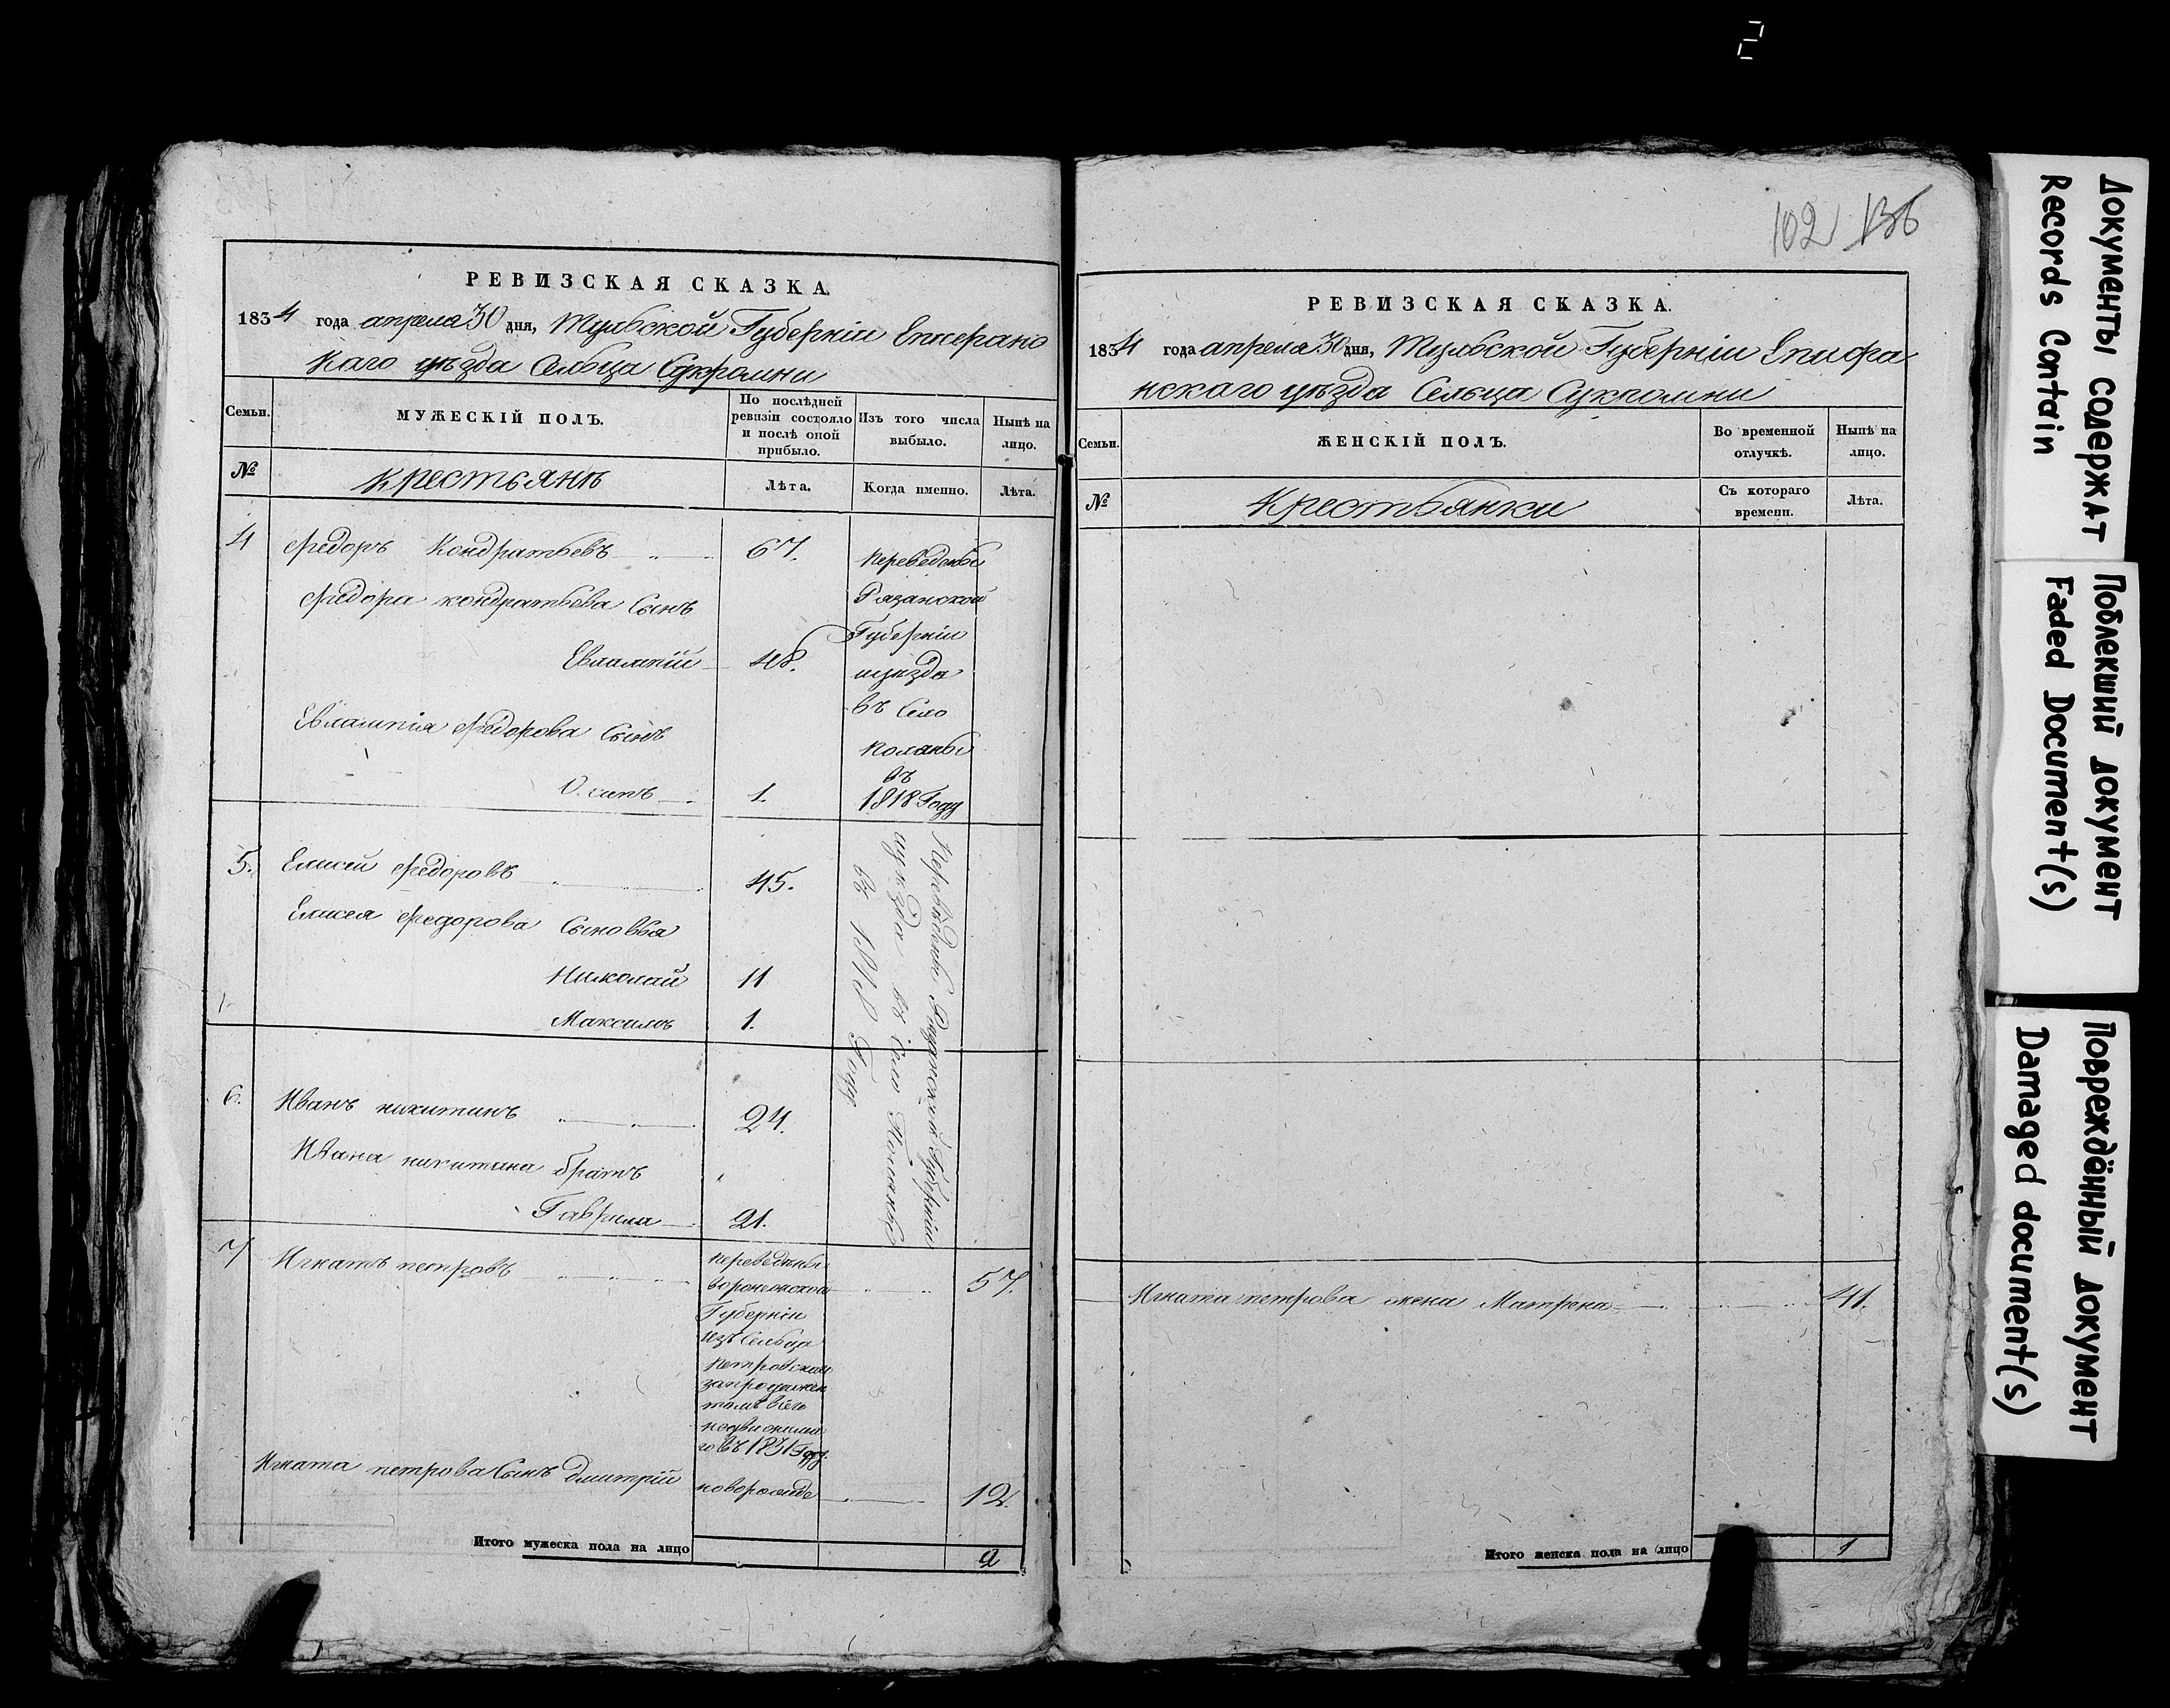 2
РЕВИЗСКАЯ СКАЗКА.
1834 года апреля 30 дня, Тульской Губерніи Епифанс
каго уѣзда Сельца Сукромни
Семьи.
МУЖЕСКІЙ ПОЛЪ.
По послѣдней ревизіи состояло и послѣ оной прибыло.
Изъ того числа выбыло.
Нынѣ на лицо.
№
крестьянъ
Лѣта.
Когда именно.
Лѣта.
4 Федоръ Кондратьевъ 67.
Федора кондратьева Сынъ
Евлампій 48.
Евлампія Федорова Сынъ
Осипъ 1.
переведены
Рязанской
Губерніи
уѣзда
въ Село
Поляны
въ
1818 Году
5. Елисей Федоровъ 45.
Елисея Федорова Сыновья
Николай 11
Максимъ 1.
6. Иванъ никитинъ 24.
Ивана никитина братъ
Гаврила 21.
Переведены Рязанской Губерніи
уѣзда въ Село Поляны
въ 1818 Году
7 Игнатъ петровъ 57.
переведены
воронежской
Губерніи
изъ Сельца
петровскаго
го въ 1831 Году.
Игната петрова Сынъ дмитрій новорожде 12.
Итого мужеска пола на лицо 2
102 136
РЕВИЗСКАЯ СКАЗКА.
1834 года апреля 30 дня, Тульской Губерніи Епифа
нскаго уѣзда Сельца Сукромни
Семьи.
ЖЕНСКІЙ ПОЛЪ.
Во временной отлучкѣ.
Нынѣ на лицо.
№
Крестьянки
Съ котораго времени.
Лѣта.
Игната петрова жена Матрена 41.
Итого женска пола на лицо 1
Документы содержат
Records Contain
Поблекший документ
Faded Document(s)
Повреждённый документ
Damaged document(s)